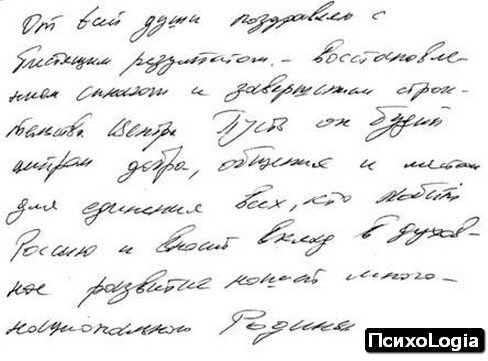 От всей души поздравляю с
блестящим результатом – восстановле-
нием синагоги и завершением строи-
тельства Центра Пусть он будет
центром добра, общения и местом
для единения всех, кто любит
Россию и вносит вклад в духов-
ное развитие нашей много-
национальной Родины
ПсихоLogia